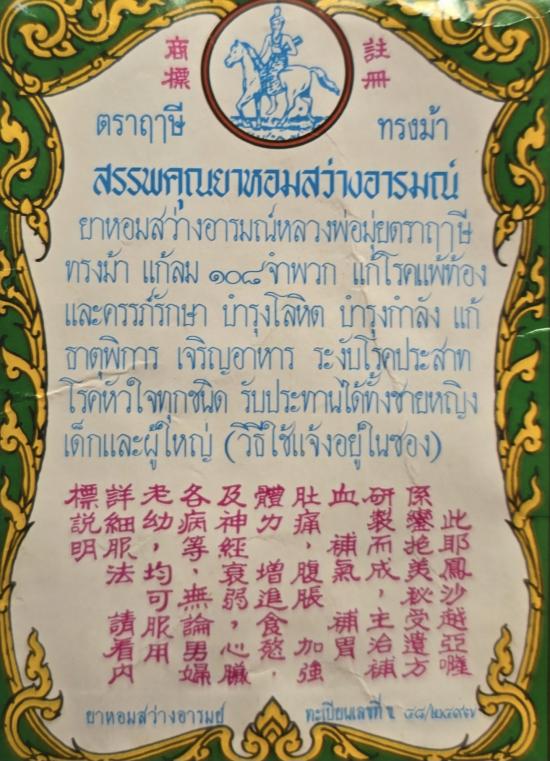 商標
註冊
ตราฤๅษี ทรงม้า
สรรพคุณยาหอมสว่างอารมณ์
ยาหอมสว่างอารมณ์หลวงพ่อมุ่ยตราฤๅษี
ทรงม้า แก้ลม ๑๐๘ จำพวก แก้โรคแพ้ท้อง
และครรภ์รักษา บำรุงโลหิต บำรุงกำลัง แก้
ธาตุพิการ เจริญอาหาร ระงับโรคประสาท
โรคหัวใจทุกชนิด รับประทานได้ทั้งชายหญิง
เด็กและผู้ใหญ่ (วิธีใช้แจ้งอยู่ในซอง)
此耶鳳沙越亞
係鑾抱美秘受遺方
研製而成,主治補
血 補氣 補胃
肚痛,腹脹 加強
體力 增進食慾,
及神經衰弱,心臟
各病等,無論男婦
老幼,均可服用
詳細服法 請看内
標説明
ยาหอมสว่างอารมย์ ทะเบียนเลขที่